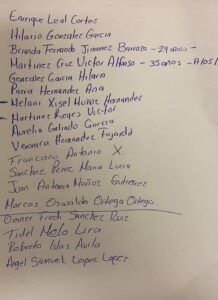 Enrique Leal Cortez
Hilario Gonzalez Garcia
Brianda Fernanda Jimenez Barraza - 29 años -
Martinez Cruz Victor Alfonso - 35 años -
Gonzalez Garcia Hilario
Parra Hernandez Ana
- Melani Xisel Muñoz Hernandez
- Martinez Reyes Victor
Aurelia Galindo Garcia
Veronica Hernandez Fajardo
Francisco Antonio X.
Sanchez Perez Maria Lucia
Juan Antonio Muñoz Gutierrez
Marcos Oswaldo Ortega Ortega.
Omner Fredi Sanchez Ruiz.
Fidel Melo Lira
Roberto Islas Avila
Angel Samuel Lopez Lopez.